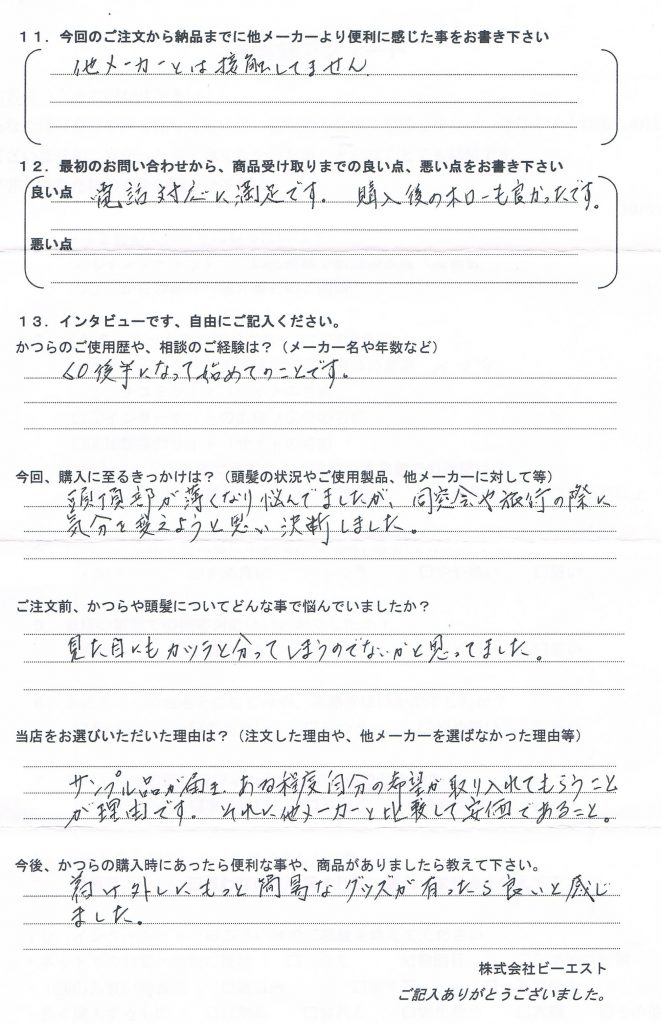 １１．今回のご注文から納品までに他メーカーより便利に感じた事をお書き下さい
他メーカーとは接触してません
１２．最初のお問い合わせから、商品受け取りまでの良い点、悪い点をお書き下さい
良い点 電話対応に満足です。 購入後のホローも良かったです。
悪い点
１３．インタビューです、自由にご記入ください。
かつらのご使用歴や、相談のご経験は？（メーカー名や年数など）
60後半になって始めてのことです。
今回、購入に至るきっかけは？（頭髪の状況やご使用製品、他メーカーに対して等）
頭頂部が薄くなり悩んでましたが、同窓会や旅行の際に
気分を変えようと思い決断しました。
ご注文前、かつらや頭髪についてどんな事で悩んでいましたか？
見た目にもカツラと分ってしまうのでないかと思ってました。
当店をお選びいただいた理由は？（注文した理由や、他メーカーを選ばなかった理由等）
サンプル品が届き、ある程度自分の希望が取り入れてもらうこと
が理由です。 それに他メーカーと比較して安価であること。
今後、かつらの購入時にあったら便利な事や、商品がありましたら教えて下さい。
着け外しにもっと簡易なグッズが有ったら良いと感じ
ました。
株式会社ビーエスト
ご記入ありがとうございました。